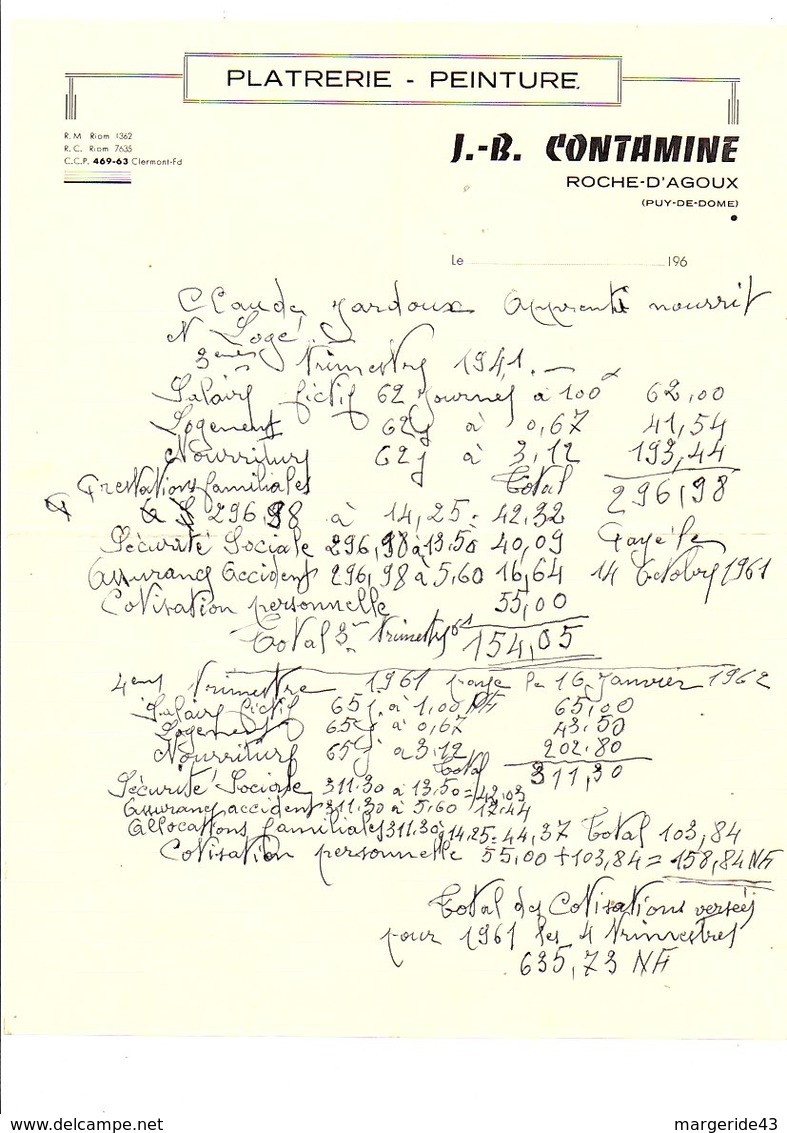 PLATRERIE - PEINTURE.
R.M Riom 1362
R.C. Riom 7635
C.C.P. 469-63 Clermont-Fd
J.-B. CONTAMINE
ROCHE-D'AGOUX
(PUY-DE-DOME)
Le 196
Claude Jardoux Apprenti nourrit
et Logé
3eme trimestre 1941.
Salaire fictif 62 journes à 100 62,00
Logement 62j à 0,67 41,54
Nourriture 62j à 3,12 193,44
Prestations familiales Total 296,98
296,98 à 14,25 = 42,32
Sécurité Sociale 296,98 à 13.50 40,09 Payé le
Assurance Accident 296,98 à 5,60 16,64 14 Octobre 1961
Cotisation personnelle 55,00
Total 3e trimestre 61 154,05
4eme trimestre 1961 payé le 16 Janvier 1962
Salaire fictif 65j. à 1,00 NF 65,00
Logement 65j à 0,67 43.50
Nourriture 65j à 3,12 202.80
Total 311,30
Sécurité Sociale 311.30 à 13,50 = 42,03
Assurance accident 311.30 à 5.60 12.44
Allocations familiales 311.30 à 14.25 = 44,37 Total 103,84
Cotisation personnelle 55,00 + 103,84 = 158,84 NF
Total des Cotisations versées
pour 1961 les 4 trimestres
635,73 NF
delcampe.net
margeride43